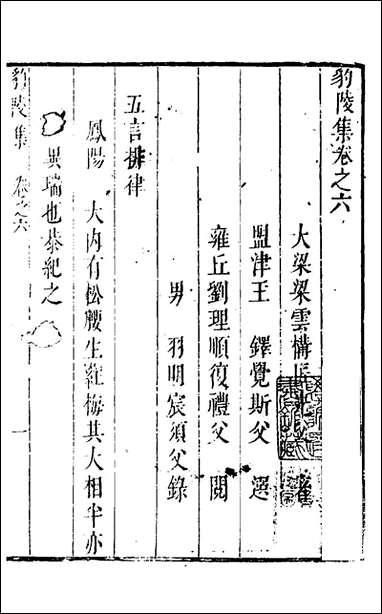 豹陵集卷之六
大梁梁雲構
盟津王　鐸覺斯父　選
雍丘劉理順復禮父　閱
男　羽明宸須父錄
五言排律
鳳陽　大內有松腰生紅梅其大相半亦
異瑞也恭紀之
豹陵集　卷之六　一